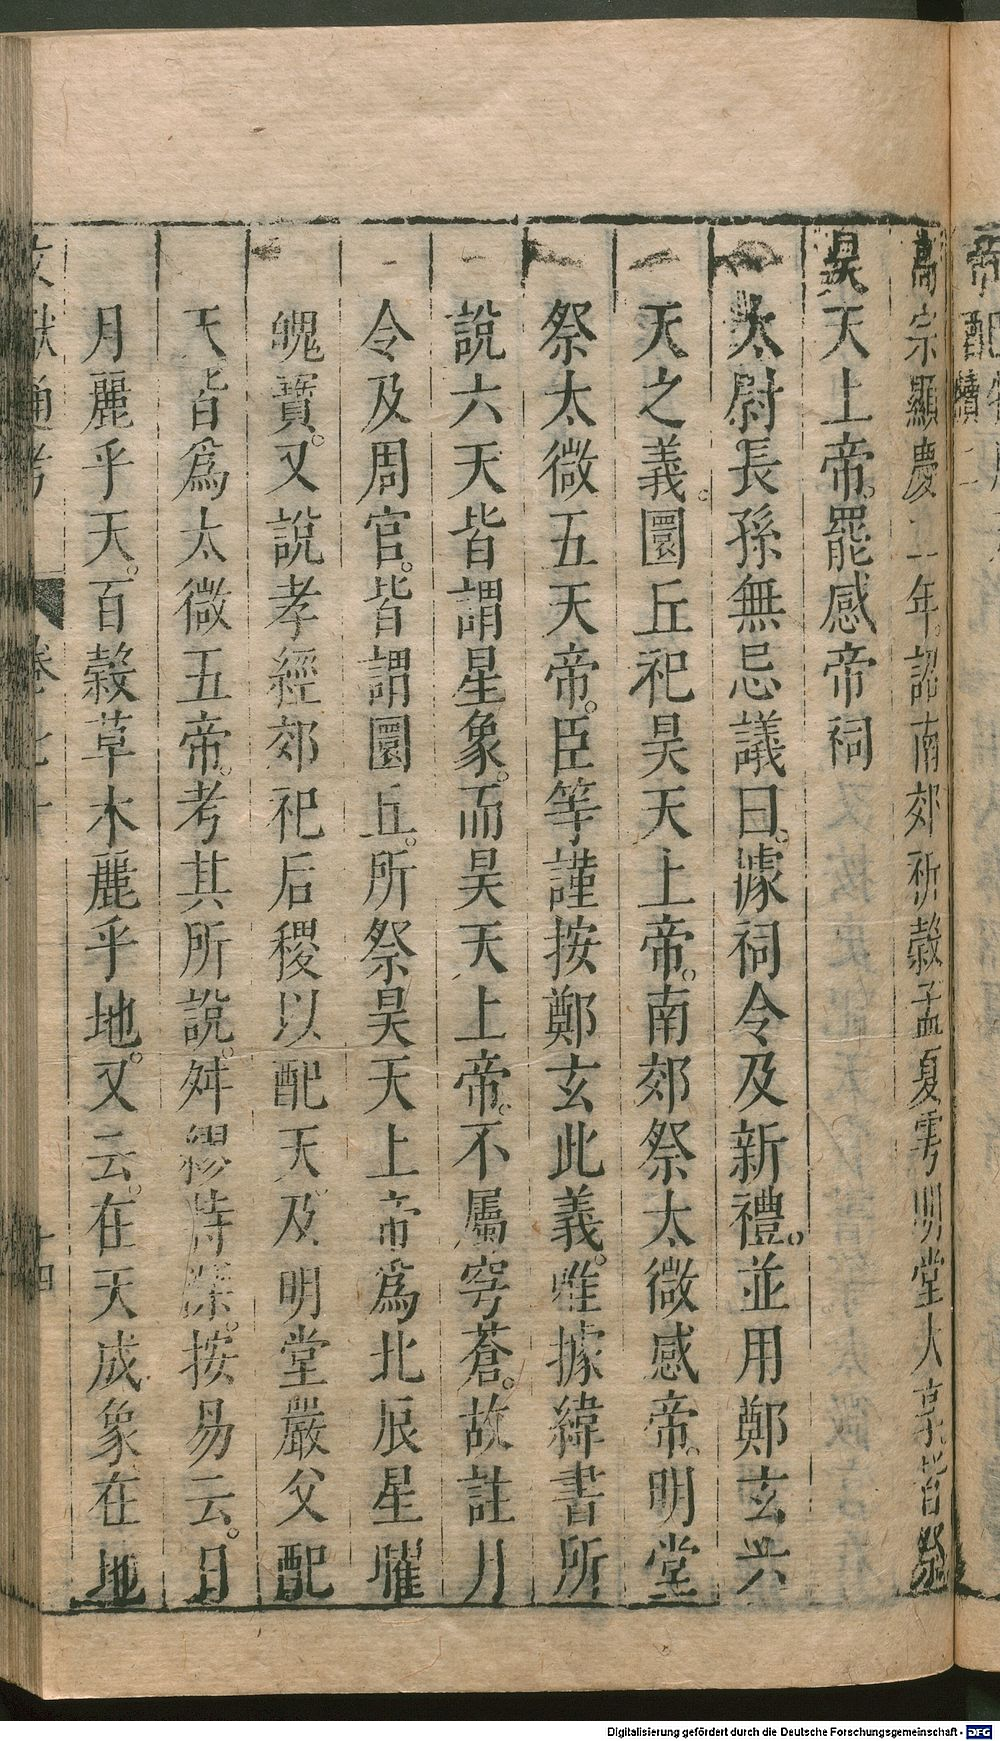 高宗顯慶二年。詔南郊祈穀孟夏雩明堂大享皆祭
昊天上帝。罷感帝祠
太尉長孫無忌議曰。據祠令及新禮。並用鄭玄六
天之義。圜丘祀昊天上帝。南郊祭太微感帝。明堂
祭太微五天帝。臣等謹按鄭玄此義。唯據緯書所
說六天皆謂星象。而昊天上帝。不屬穹蒼。故註月
令及周官。皆謂圜丘。所祭昊天上帝爲北辰星曜
魄寶。又說孝經郊祀后稷以配天。及明堂嚴父配
天皆爲太微五帝。考其所說。舛繆特深。按易云。日
月麗乎天。百穀草木麗乎地。又云。在天成象在地
文獻通考 卷七十 十四
Digitalisierung gefördert durch die Deutsche Forschungsgemeinschaft - DFG